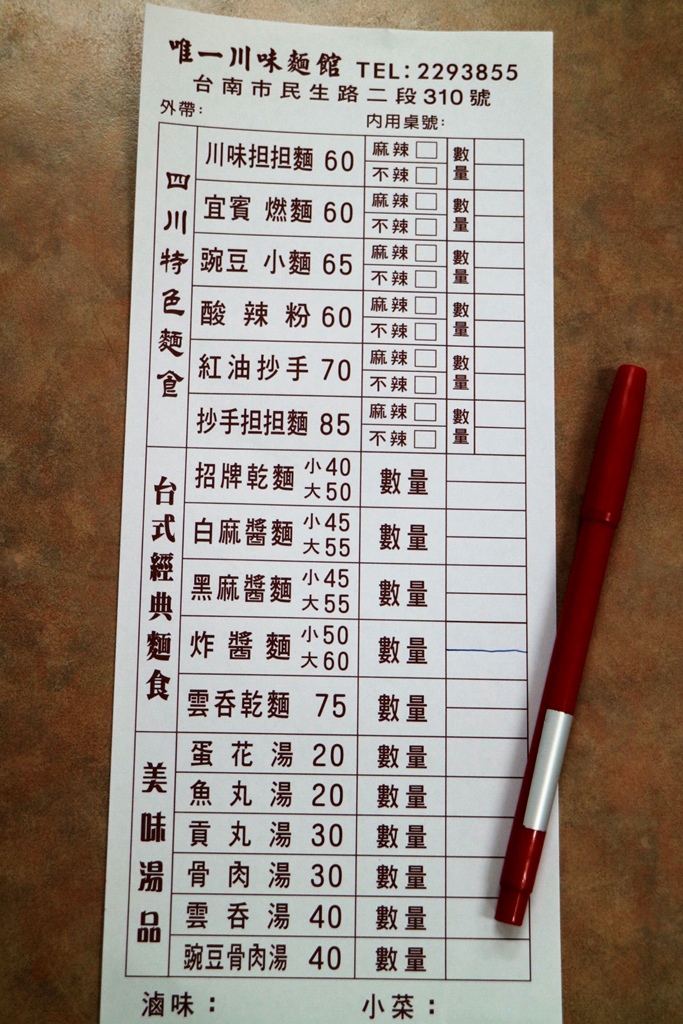 唯一川味麵館 TEL:2293855
台南市民生路二段310號
外帶: 内用桌號:
四川特色麵食
川味担担麵 60 麻辣 不辣 數量
宜賓 燃麵 60 麻辣 不辣 數量
豌豆 小麵 65 麻辣 不辣 數量
酸辣粉 60 麻辣 不辣 數量
紅油抄手 70 麻辣 不辣 數量
抄手担担麵 85 麻辣 不辣 數量
台式經典麵食
招牌乾麵 小40 大50 數量
白麻醬麵 小45 大55 數量
黑麻醬麵 小45 大55 數量
炸醬麵 小50 大60 數量
雲吞乾麵 75 數量
美味湯品
蛋花湯 20 數量
魚丸湯 20 數量
貢丸湯 30 數量
骨肉湯 30 數量
雲吞湯 40 數量
豌豆骨肉湯 40 數量
滷味: 小菜: